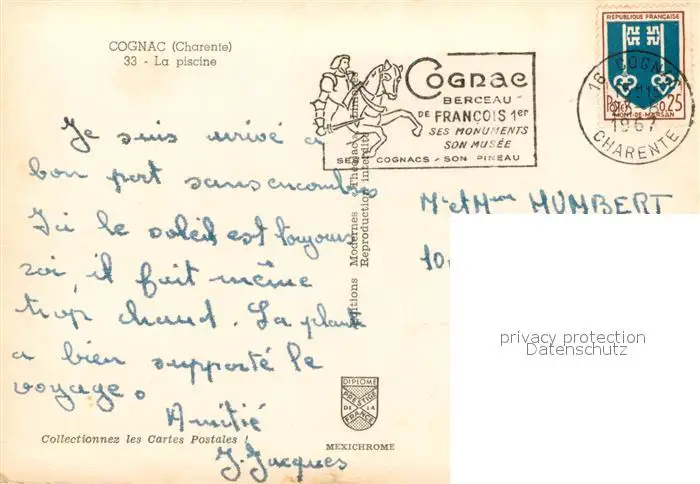 COGNAC (Charente)
33 - La piscine
Cognac
BERCEAU
DE FRANÇOIS 1er
SES MONUMENTS
SON MUSÉE
SES COGNACS - SON PINEAU
REPUBLIQUE FRANÇAISE
POSTES 0,25
MONT-DE-MARSAN
16 COGNAC
1967
CHARENTE
Je suis arrivé à
bon port sans encombres
Ici le soleil est toujours
roi, il fait même
trop chaud. La plante
a bien supporté le
voyage.
Amitié
J. Jacques
Editions Modernes
Reproduction interdite
Mr et Mme HUMBERT
10
privacy protection
Datenschutz
DIPLOME
PRESTIGE
DE LA
FRANCE
MEXICHROME
Collectionnez les Cartes Postales !